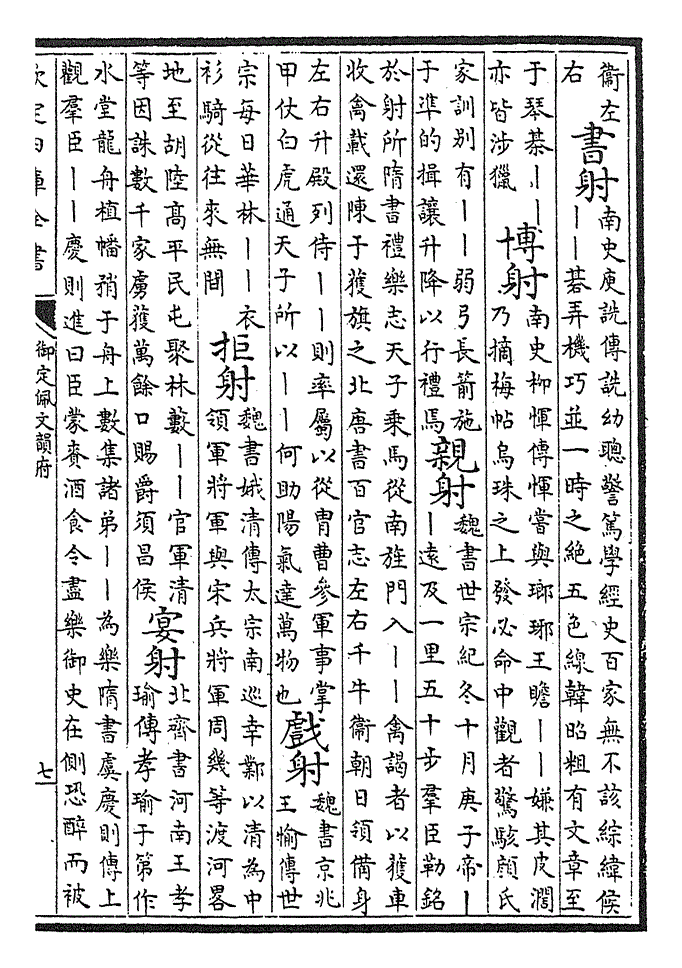 衞左
右
書射
南史庾詵傳詵幼聰警篤學經史百家無不該綜緯候
丨丨碁弄機巧並一時之絶五色線韓昭粗有文章至
于琴碁丨丨
亦皆涉獵
博射
南史栁惲傳惲嘗與瑯琊王瞻丨丨嫌其皮濶
乃摘梅帖烏珠之上發必命中觀者驚駭顔氏
家訓别有丨丨弱弓長箭施
于準的揖讓升降以行禮焉
親射
魏書世宗紀冬十月庚子帝丨
丨遠及一里五十步羣臣勒銘
於射所隋書禮樂志天子乘馬從南旌門入丨丨禽謁者以獲車
收禽載還陳于獲旗之北唐書百官志左右千牛衞朝日領備身
左右升殿列侍丨丨則率屬以從胄曹參軍事掌
甲仗白虎通天子所以丨丨何助陽氣達萬物也
戲射
魏書京兆
王愉傳世
宗每日華林丨丨衣
衫騎從往來無間
拒射
魏書娥清傳太宗南巡幸鄴以清為中
領軍將軍與宋兵將軍周幾等渡河畧
地至胡陸髙平民屯聚林藪丨丨官軍清
等因誅數千家虜獲萬餘口賜爵須昌侯
宴射
北齊書河南王孝
瑜傳孝瑜于第作
水堂龍舟植幡矟于舟上數集諸弟丨丨為樂隋書虞慶則傳上
觀羣臣丨丨慶則進曰臣蒙賚酒食令盡樂御史在側恐醉而被
欽定四庫全書
御定佩文韻府
七